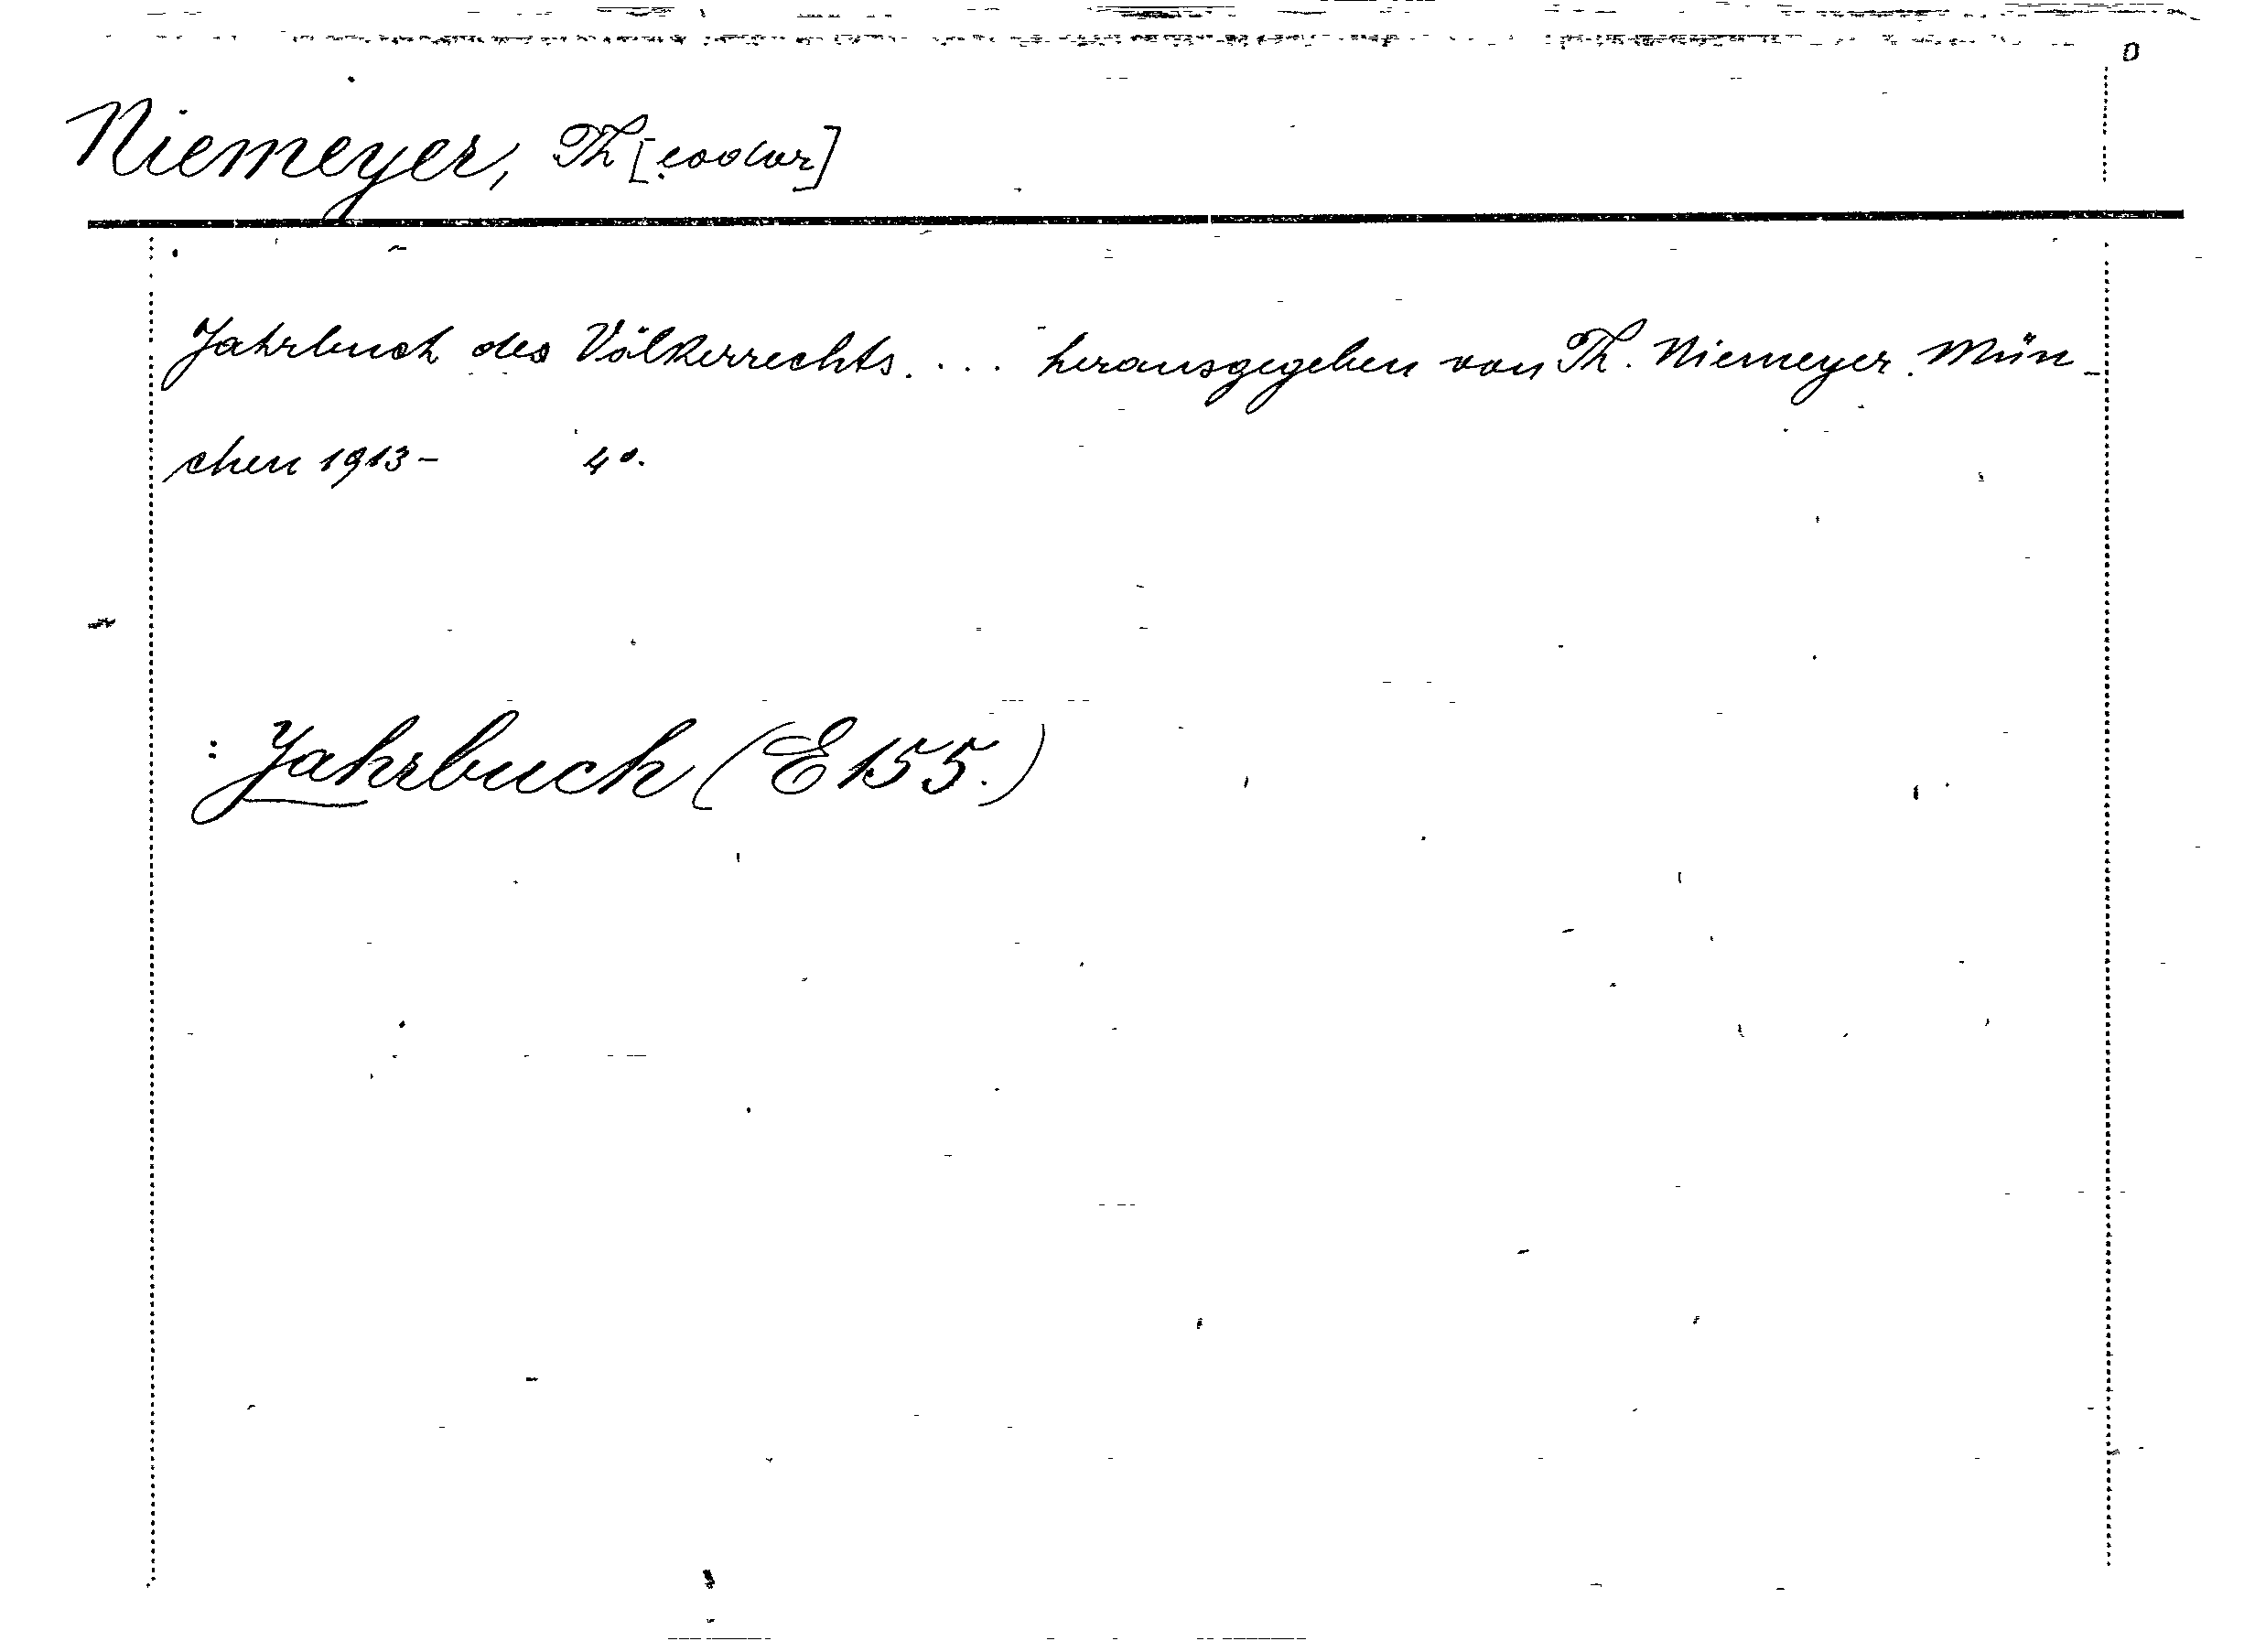 Niemeyer, Th[eodor]
Jahrbuch des Völkerrechts. ... herausgegeben von Th. Niemeyer. Mün-
chen 1913- 4°.
: Jahrbuch (E 155.)